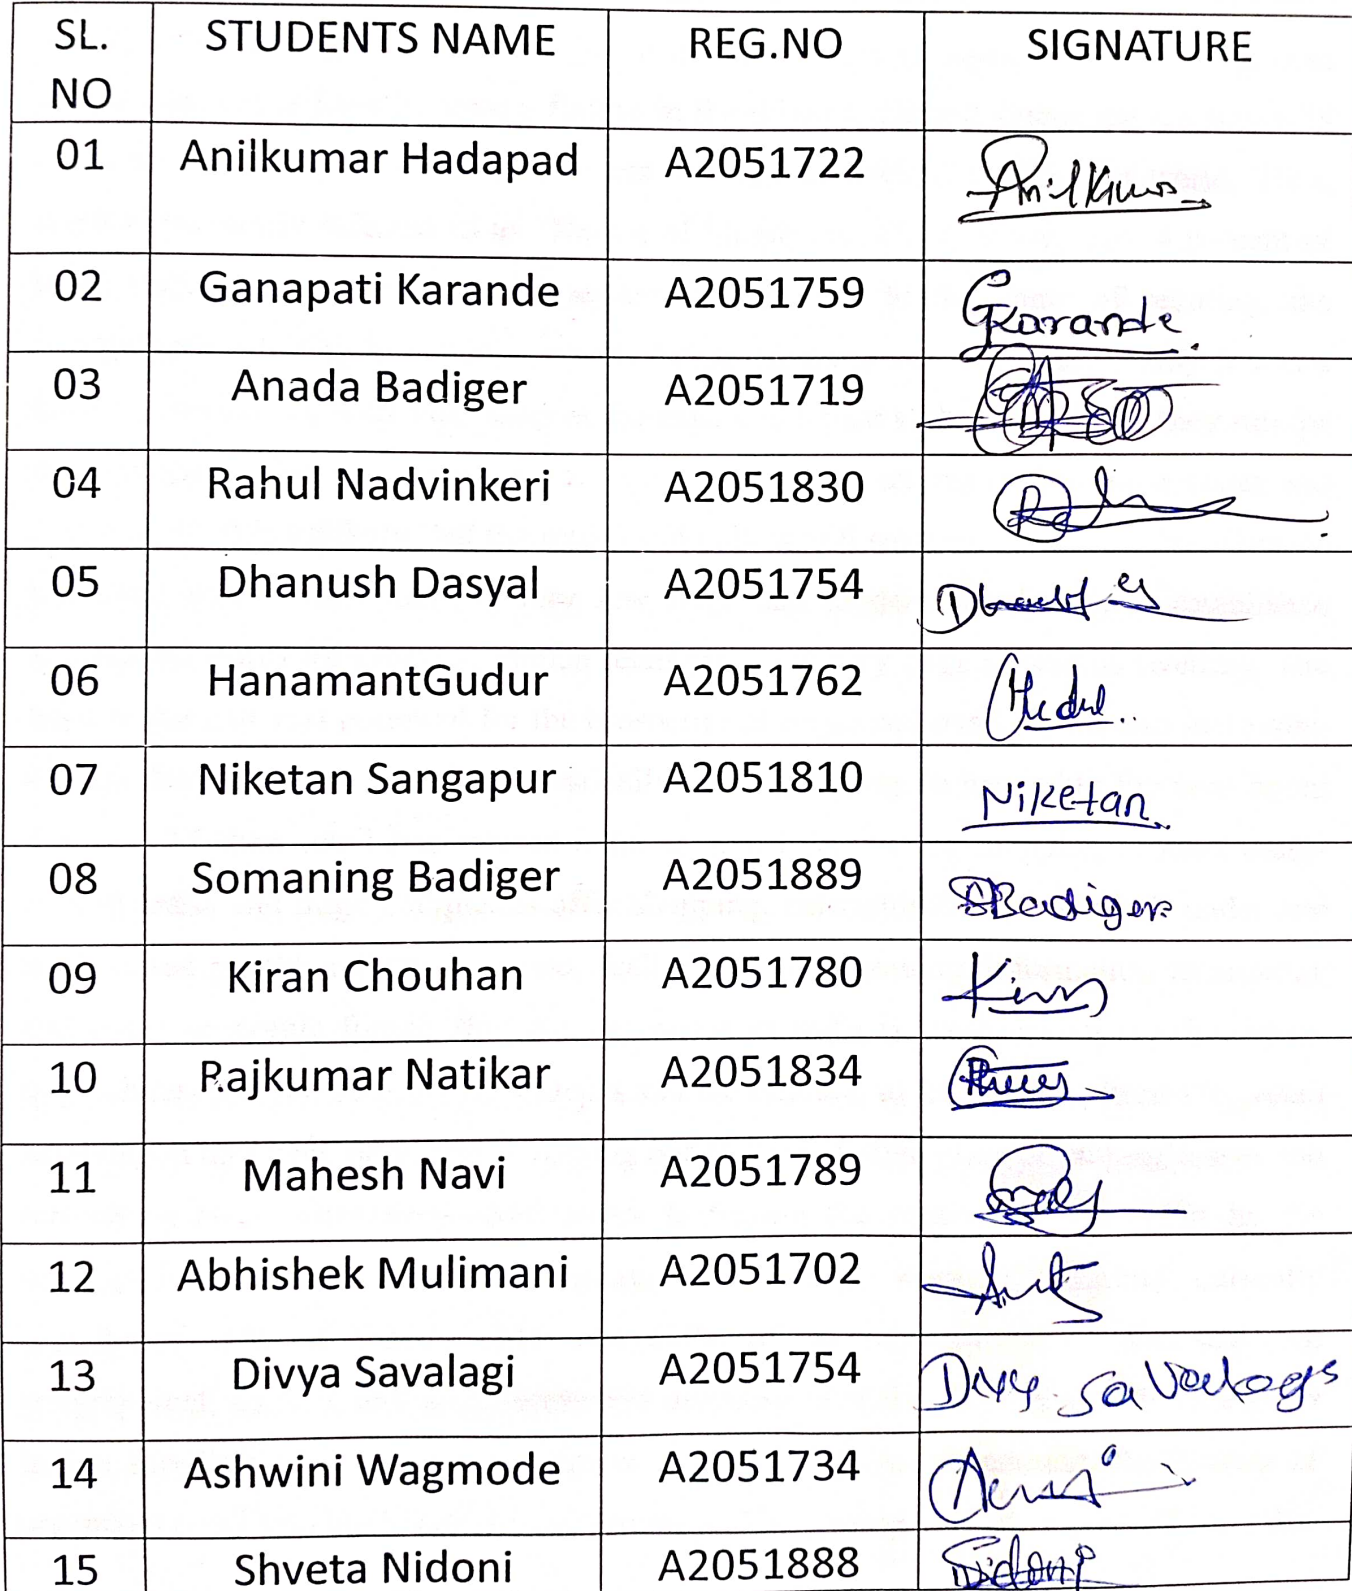 SL. NO STUDENTS NAME REG.NO SIGNATURE
01 Anilkumar Hadapad A2051722 Anilkumar
02 Ganapati Karande A2051759 GKarande
03 Anada Badiger A2051719
04 Rahul Nadvinkeri A2051830
05 Dhanush Dasyal A2051754
06 HanamantGudur A2051762
07 Niketan Sangapur A2051810 Niketan
08 Somaning Badiger A2051889 SBadiger
09 Kiran Chouhan A2051780
10 Rajkumar Natikar A2051834
11 Mahesh Navi A2051789
12 Abhishek Mulimani A2051702
13 Divya Savalagi A2051754
14 Ashwini Wagmode A2051734
15 Shveta Nidoni A2051888